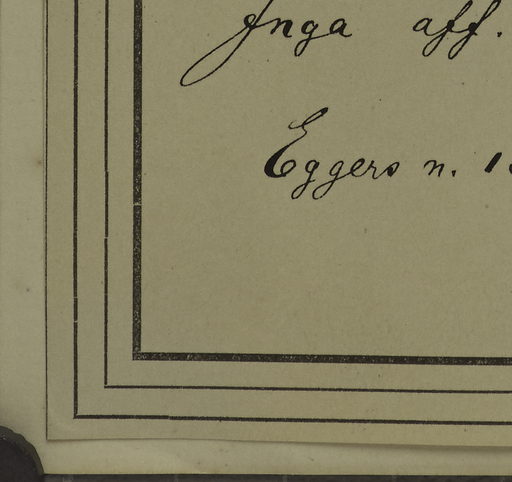 Inga aff.
Eggers n. 1